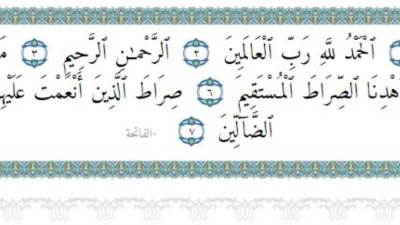 ٱلْحَمْدُ لِلَّهِ رَبِّ ٱلْعَالَمِينَ ٢ ٱلرَّحْمَـٰنِ ٱلرَّحِيمِ ٣
ٱلصِّرَاطَ ٱلْمُسْتَقِيمَ ٦ صِرَاطَ ٱلَّذِينَ أَنْعَمْتَ
ٱلضَّآلِّينَ ٧ -الفاتحة